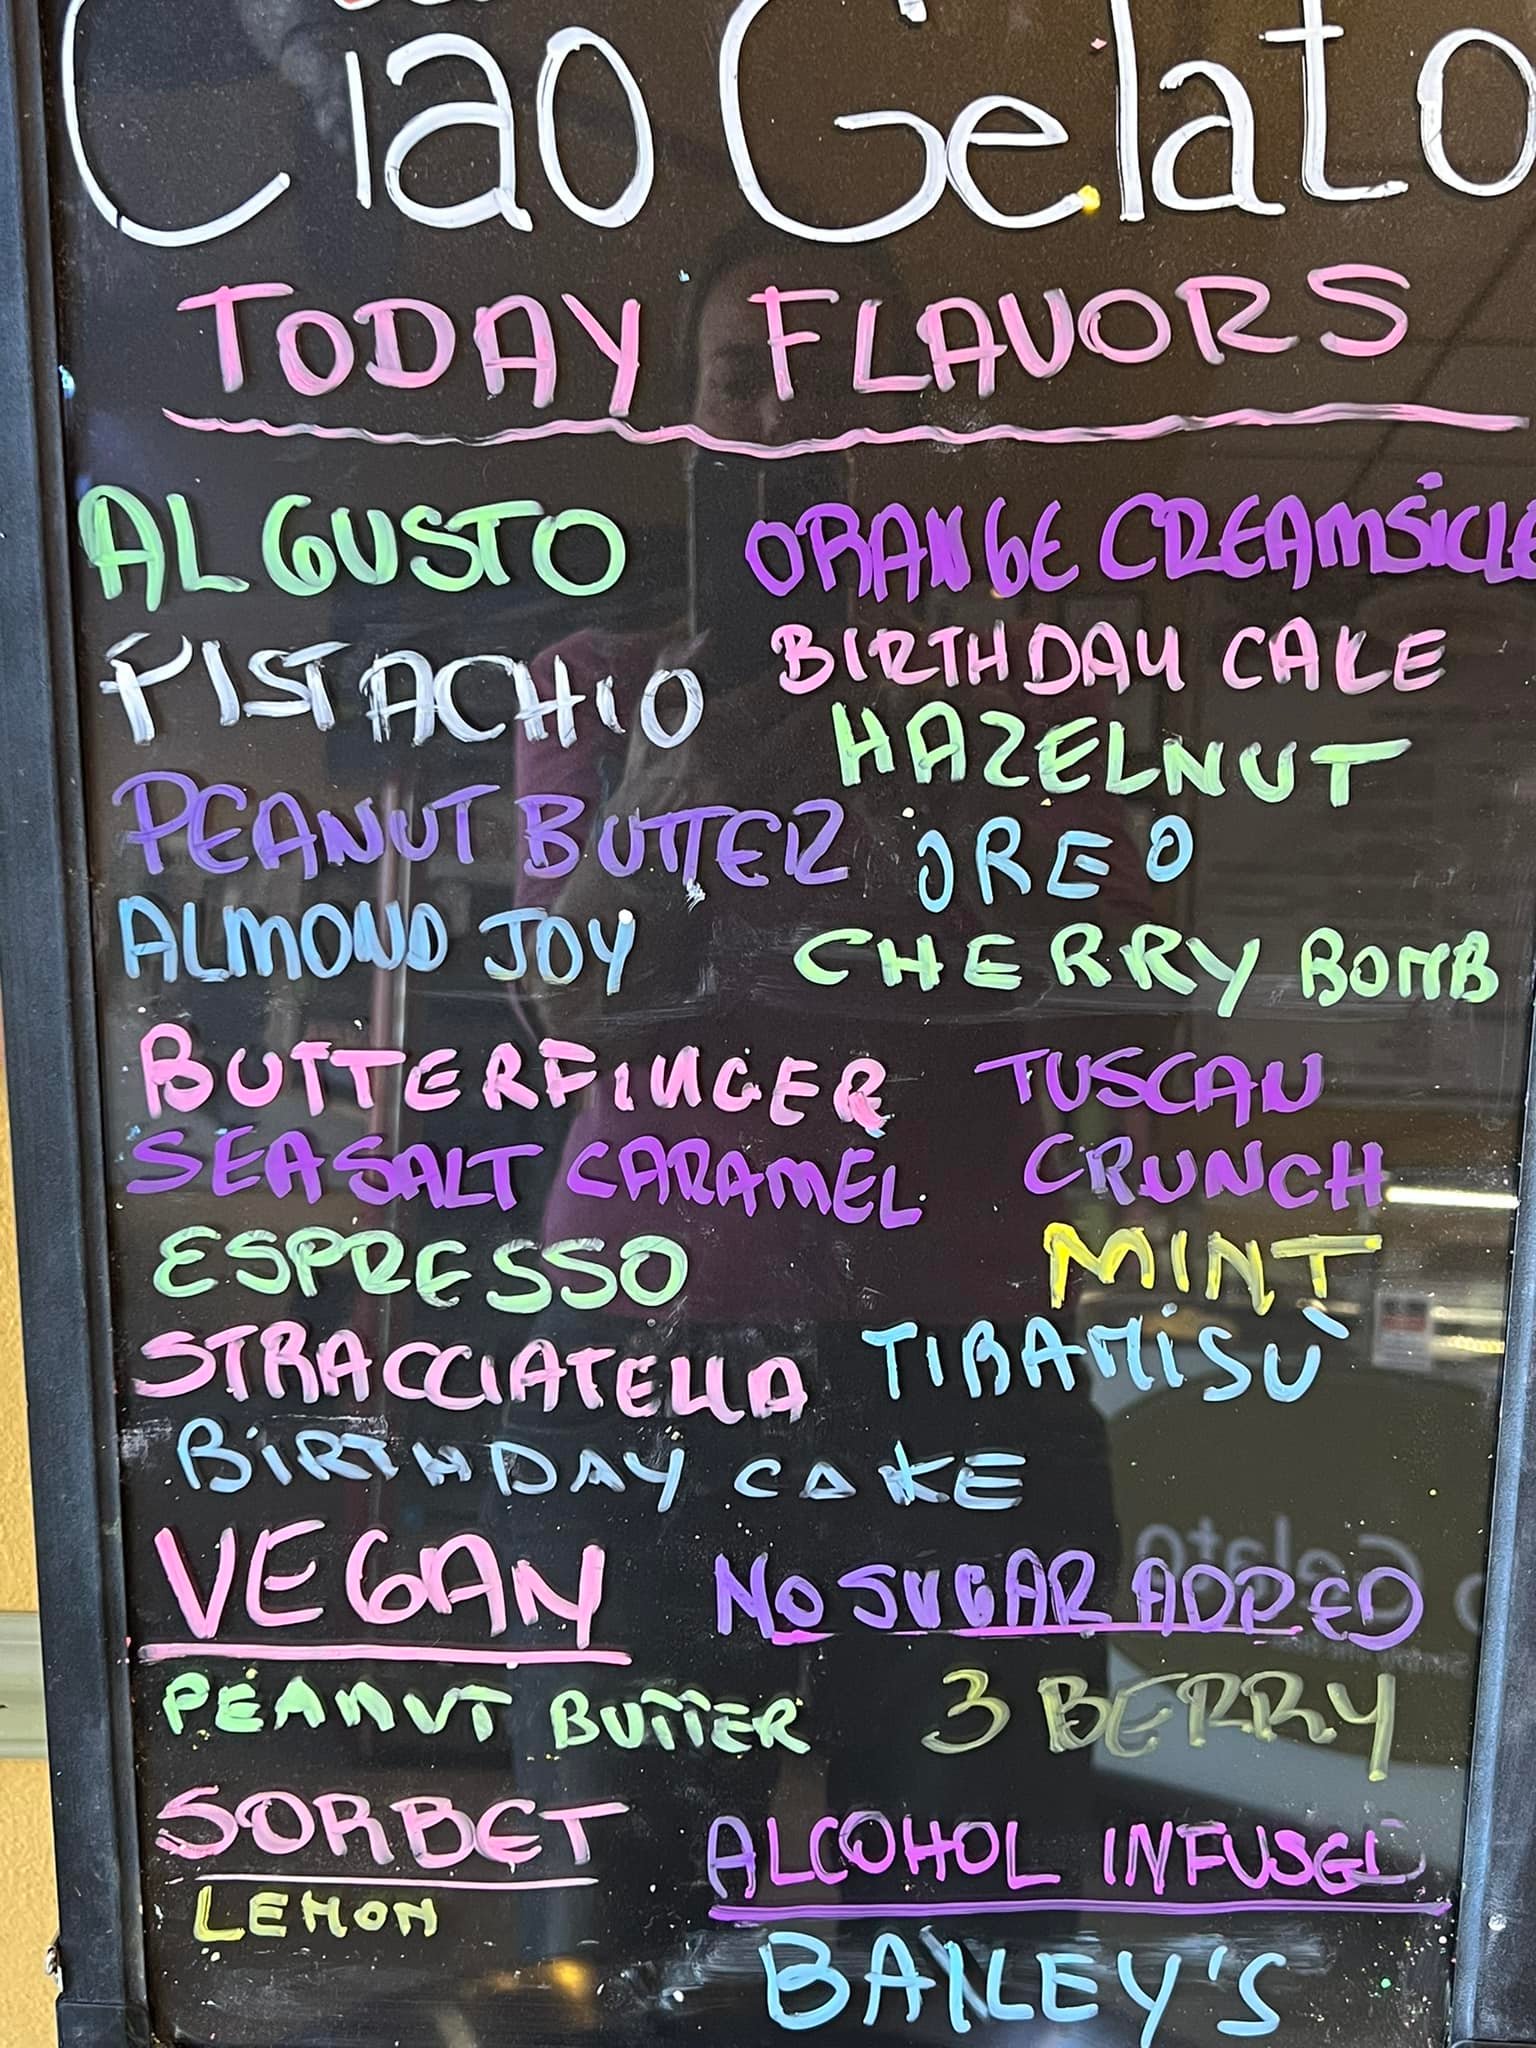 Ciao Gelato
TODAY FLAVORS
AL GUSTO
PISTACHIO
PEANUT BUTTER
ALMOND JOY
BUTTERFINGER
SEA SALT CARAMEL
ESPRESSO
STRACCIATELLA
BIRTHDAY CAKE
ORANGE CREAMSICLE
BIRTHDAY CAKE
HAZELNUT
OREO
CHERRY BOMB
TUSCAN
CRUNCH
MINT
TIRAMISÙ
VEGAN
PEANUT BUTTER
SORBET
LEMON
NO SUGAR ADDED
3 BERRY
ALCOHOL INFUSED
BAILEY'S
Gelato